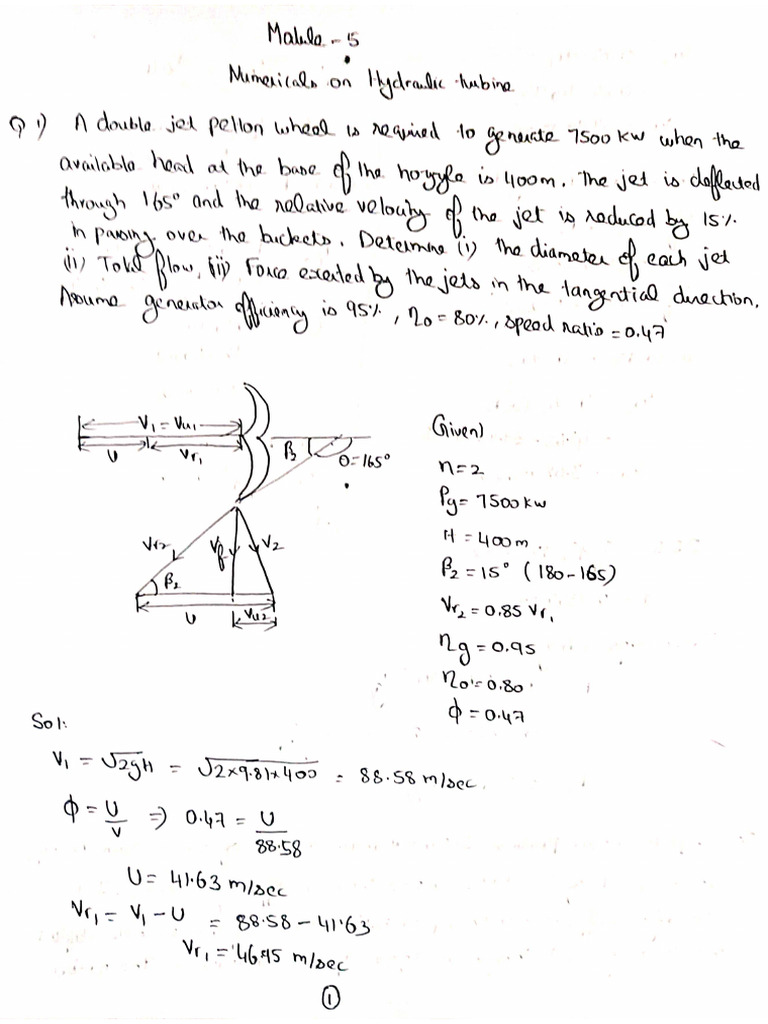 Module - 5
Numericals on Hydraulic turbine
Q 1) A double jet pelton wheel is required to generate 7500 kw when the
available head at the base of the nozzle is 400m. The jet is deflected
through 165° and the relative velocity of the jet is reduced by 15%
in passing over the buckets. Determine (i) the diameter of each jet
(ii) Total flow, (iii) Force exerted by the jets in the tangential direction.
Assume generator efficiency is 95%, η0 = 80%, speed ratio = 0.47
V1 = Vu1
U
Vr1
β
θ=165°
Vr2
Vf
V2
β2
U
Vu2
Given)
n=2
Pg= 7500kw
H = 400m.
β2 = 15° (180-165)
Vr2 = 0.85 Vr1
ηg = 0.95
η0 = 0.80
ϕ = 0.47
Sol:
V1 = √2gH = √2×9.81×400 = 88.58 m/sec
ϕ = U/V => 0.47 = U/88.58
U = 41.63 m/sec
Vr1 = V1 - U = 88.58 - 41.63
Vr1 = 46.95 m/sec
1